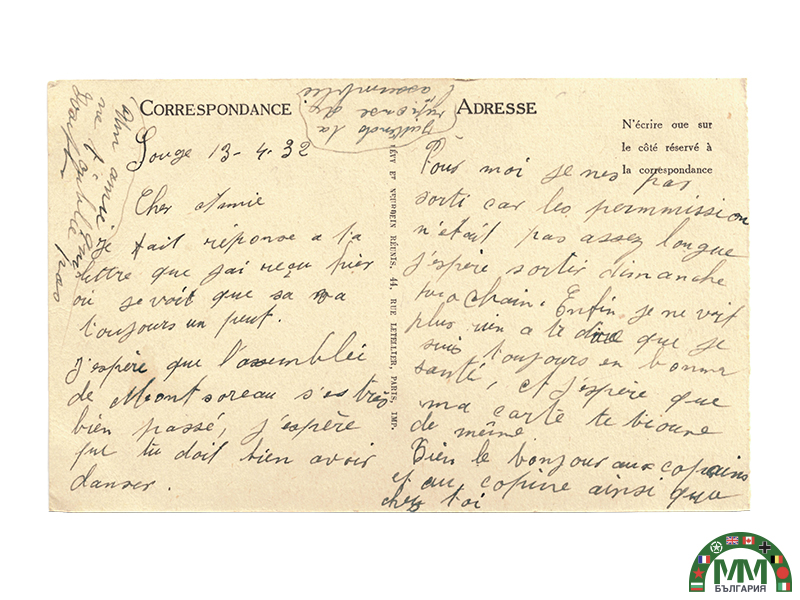 CORRESPONDANCE
Souge 13-4.32
Cher Amie
Je fait réponse a ta
lettre que j'ai reçu hier
ou je voit que sa va
toujours un peut.
J'espère que l'assemblée
de Montsoreau s'es très
bien passé, j'espère
que tu doit bien avoir
danser.
Mon amie je
ne t'oublie
pas
J'attends ta
réponse de
l'assemblée
LÉVY ET NEURDEIN RÉUNIS, 44, RUE LETELLIER, PARIS, IMP.
ADRESSE
N'écrire que sur
le côté réservé à
la correspondance
Pour moi je nes pas
sorti car les permmission
n'était pas assez longue
j'espère sortir dimanche
prochain. Enfin je ne voit
plus rien a te dire que je
suis toujours en bonne
santé, et j'espère que
ma carte te bioune
de même
Bien le bonjour aux copains
et au copine ainsi que
chez toi
MM
БЪЛГАРИЯ